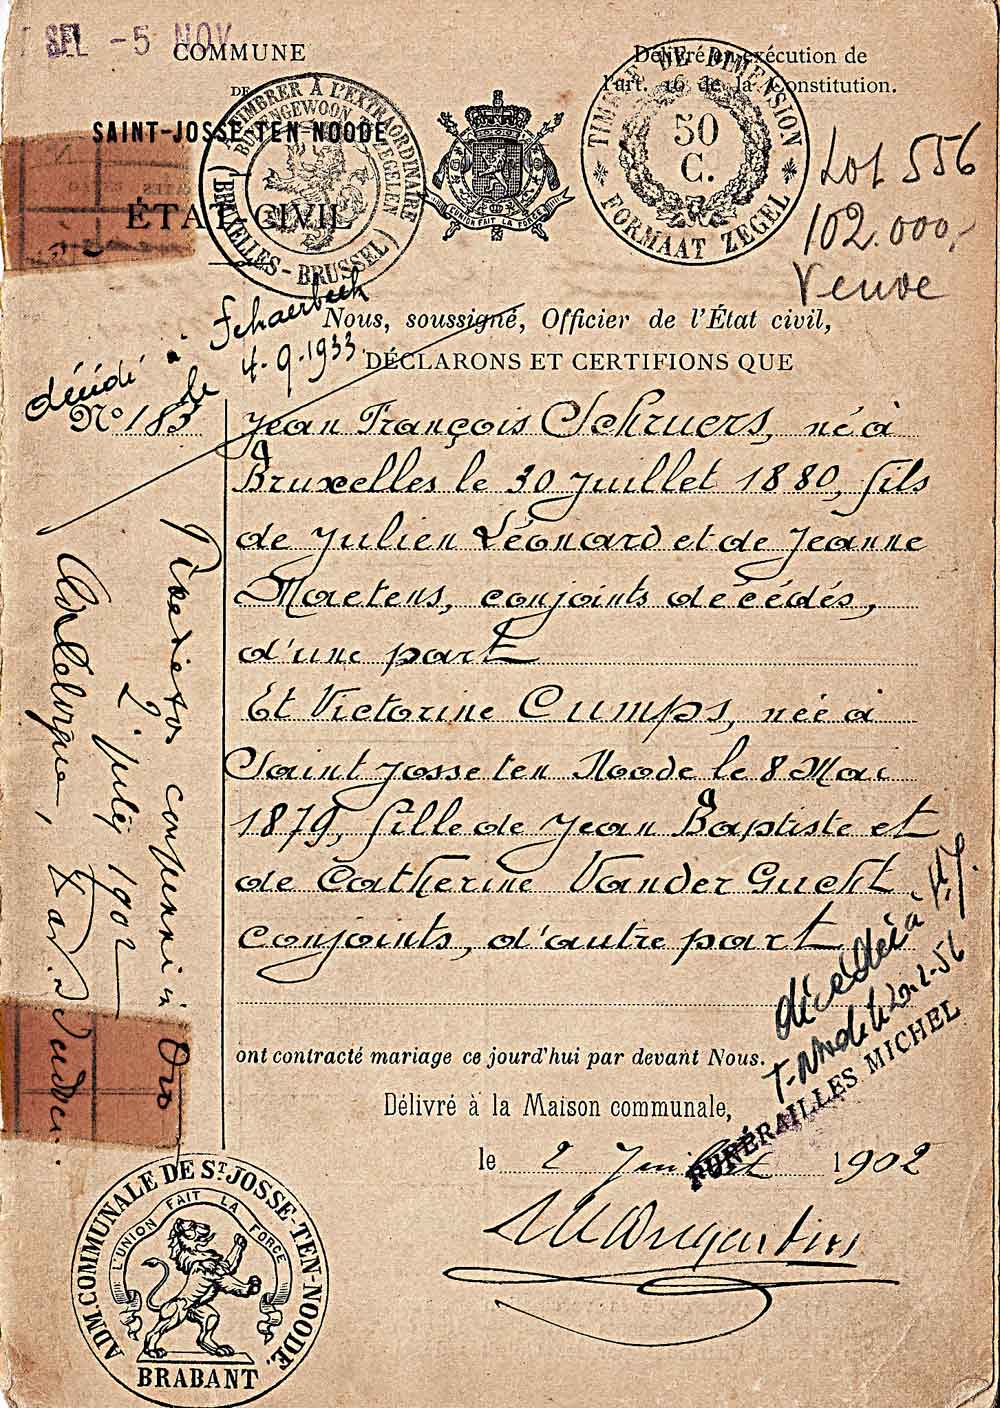 -5 NOV
COMMUNE
DE
SAINT-JOSSE-TEN-NOODE
ÉTAT-CIVIL
TIMBRER À L'EXTRAORDINAIRE
BUITENGEWOON ZEGELEN
(BRUXELLES-BRUSSEL)
L'UNION FAIT LA FORCE
Délivré en exécution de
l'art. 16 de la Constitution.
TIMBRE DE DIMENSION
50
C.
FORMAAT ZEGEL
Lot 556
102.000,-
Veuve
décédé à Schaerbeek
le 4-9-1933
Nous, soussigné, Officier de l'État civil,
DÉCLARONS ET CERTIFIONS QUE
N° 183
Jean François Schruers, né à
Bruxelles le 30 Juillet 1880, fils
de Julien Léonard et de Jeanne
Maetens, conjoints décédés,
d'une part
Et Victorine Cumps, née à
Saint Josse ten Noode le 8 Mai
1879, fille de Jean Baptiste et
de Catherine Vander Gucht
conjoints, d'autre part
2 1902
décédée à St-J.
T-Node le 20-2-56
FUNÉRAILLES MICHEL
ont contracté mariage ce jourd'hui par devant Nous.
Délivré à la Maison communale,
le 2 Juillet 1902
ADM. COMMUNALE DE ST. JOSSE-TEN-NOODE.
L'UNION FAIT LA FORCE
BRABANT